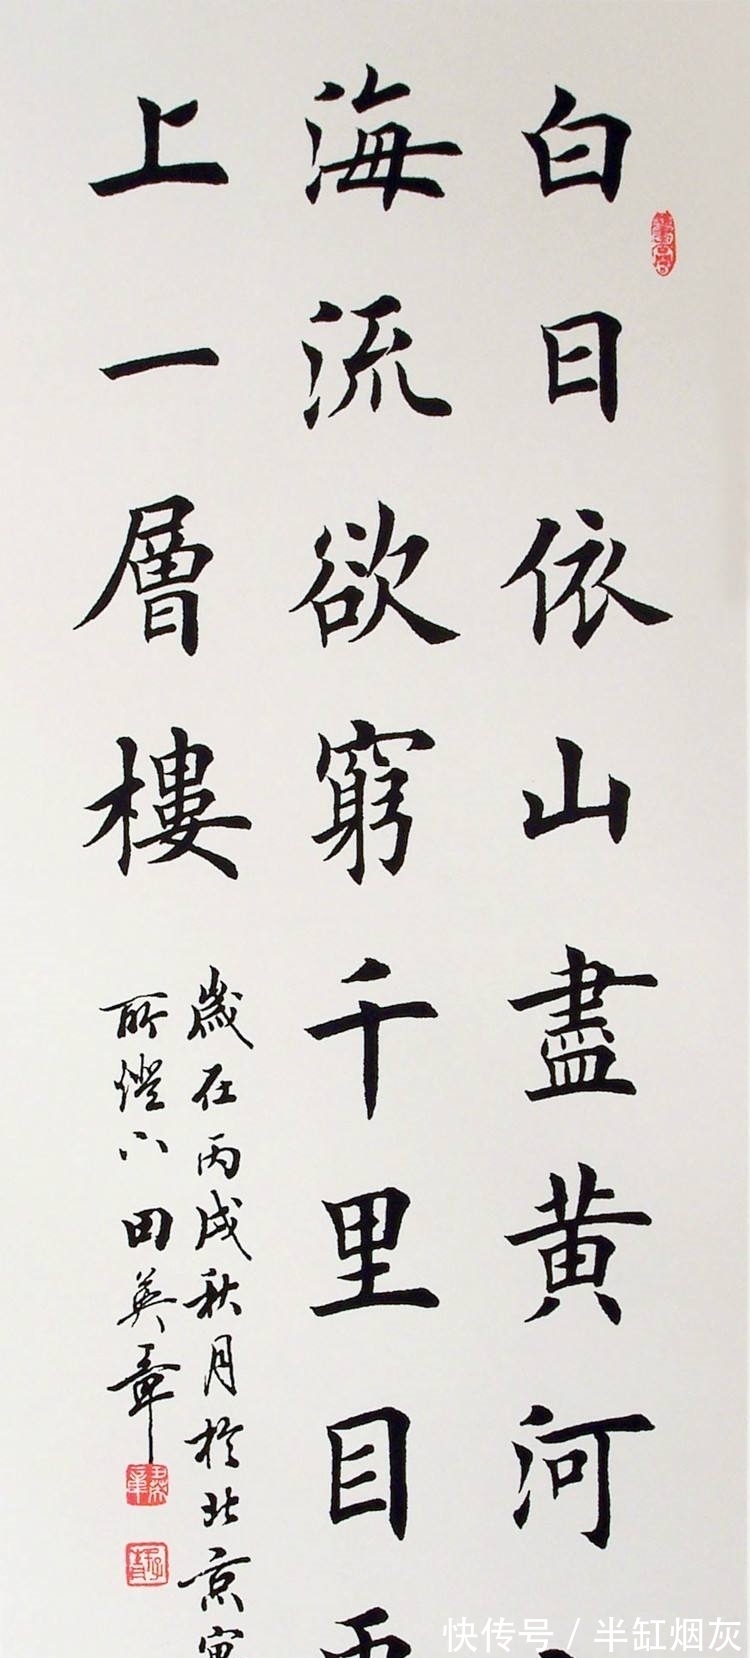 白日依山盡黄河
海流欲窮千里目
上一層樓
歲在丙戌秋月於北京寓
所燈下田英章
快传号/半缸烟灰